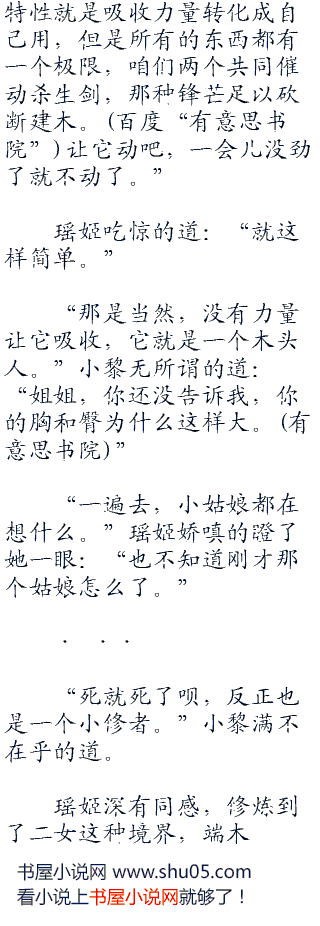 特性就是吸收力量转化成自
己用，但是所有的东西都有
一个极限，咱们两个共同催
动杀生剑，那种锋芒足以砍
断建木。(百度“有意思书
院”)让它动吧，一会儿没劲
了就不动了。”
瑶姬吃惊的道：“就这
样简单。”
“那是当然，没有力量
让它吸收，它就是一个木头
人。”小黎无所谓的道：
“姐姐，你还没告诉我，你
的胸和臀为什么这样大。(有
意思书院)”
“一遍去，小姑娘都在
想什么。”瑶姬娇嗔的蹬了
她一眼：“也不知道刚才那
个姑娘怎么了。”
. . .
“死就死了呗，反正也
是一个小修者。”小黎满不
在乎的道。
瑶姬深有同感，修炼到
了二女这种境界，端木
书屋小说网 www.shu05.com
看小说上书屋小说网就够了！